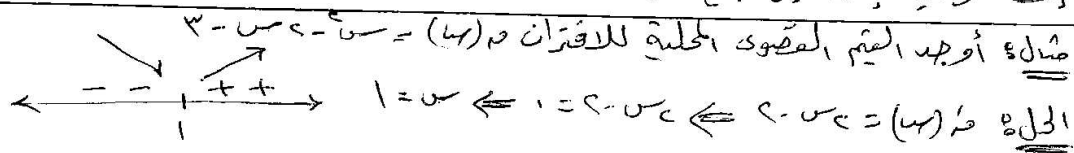 مثال: أوجد القيم القصوى المحلية للاقتران ق(س) = س² - ٢س - ٣
الحل: قَ(س) = ٢س - ٢ ⇐ ٢س - ٢ = ٠ ⇐ س = ١
- - + +
١